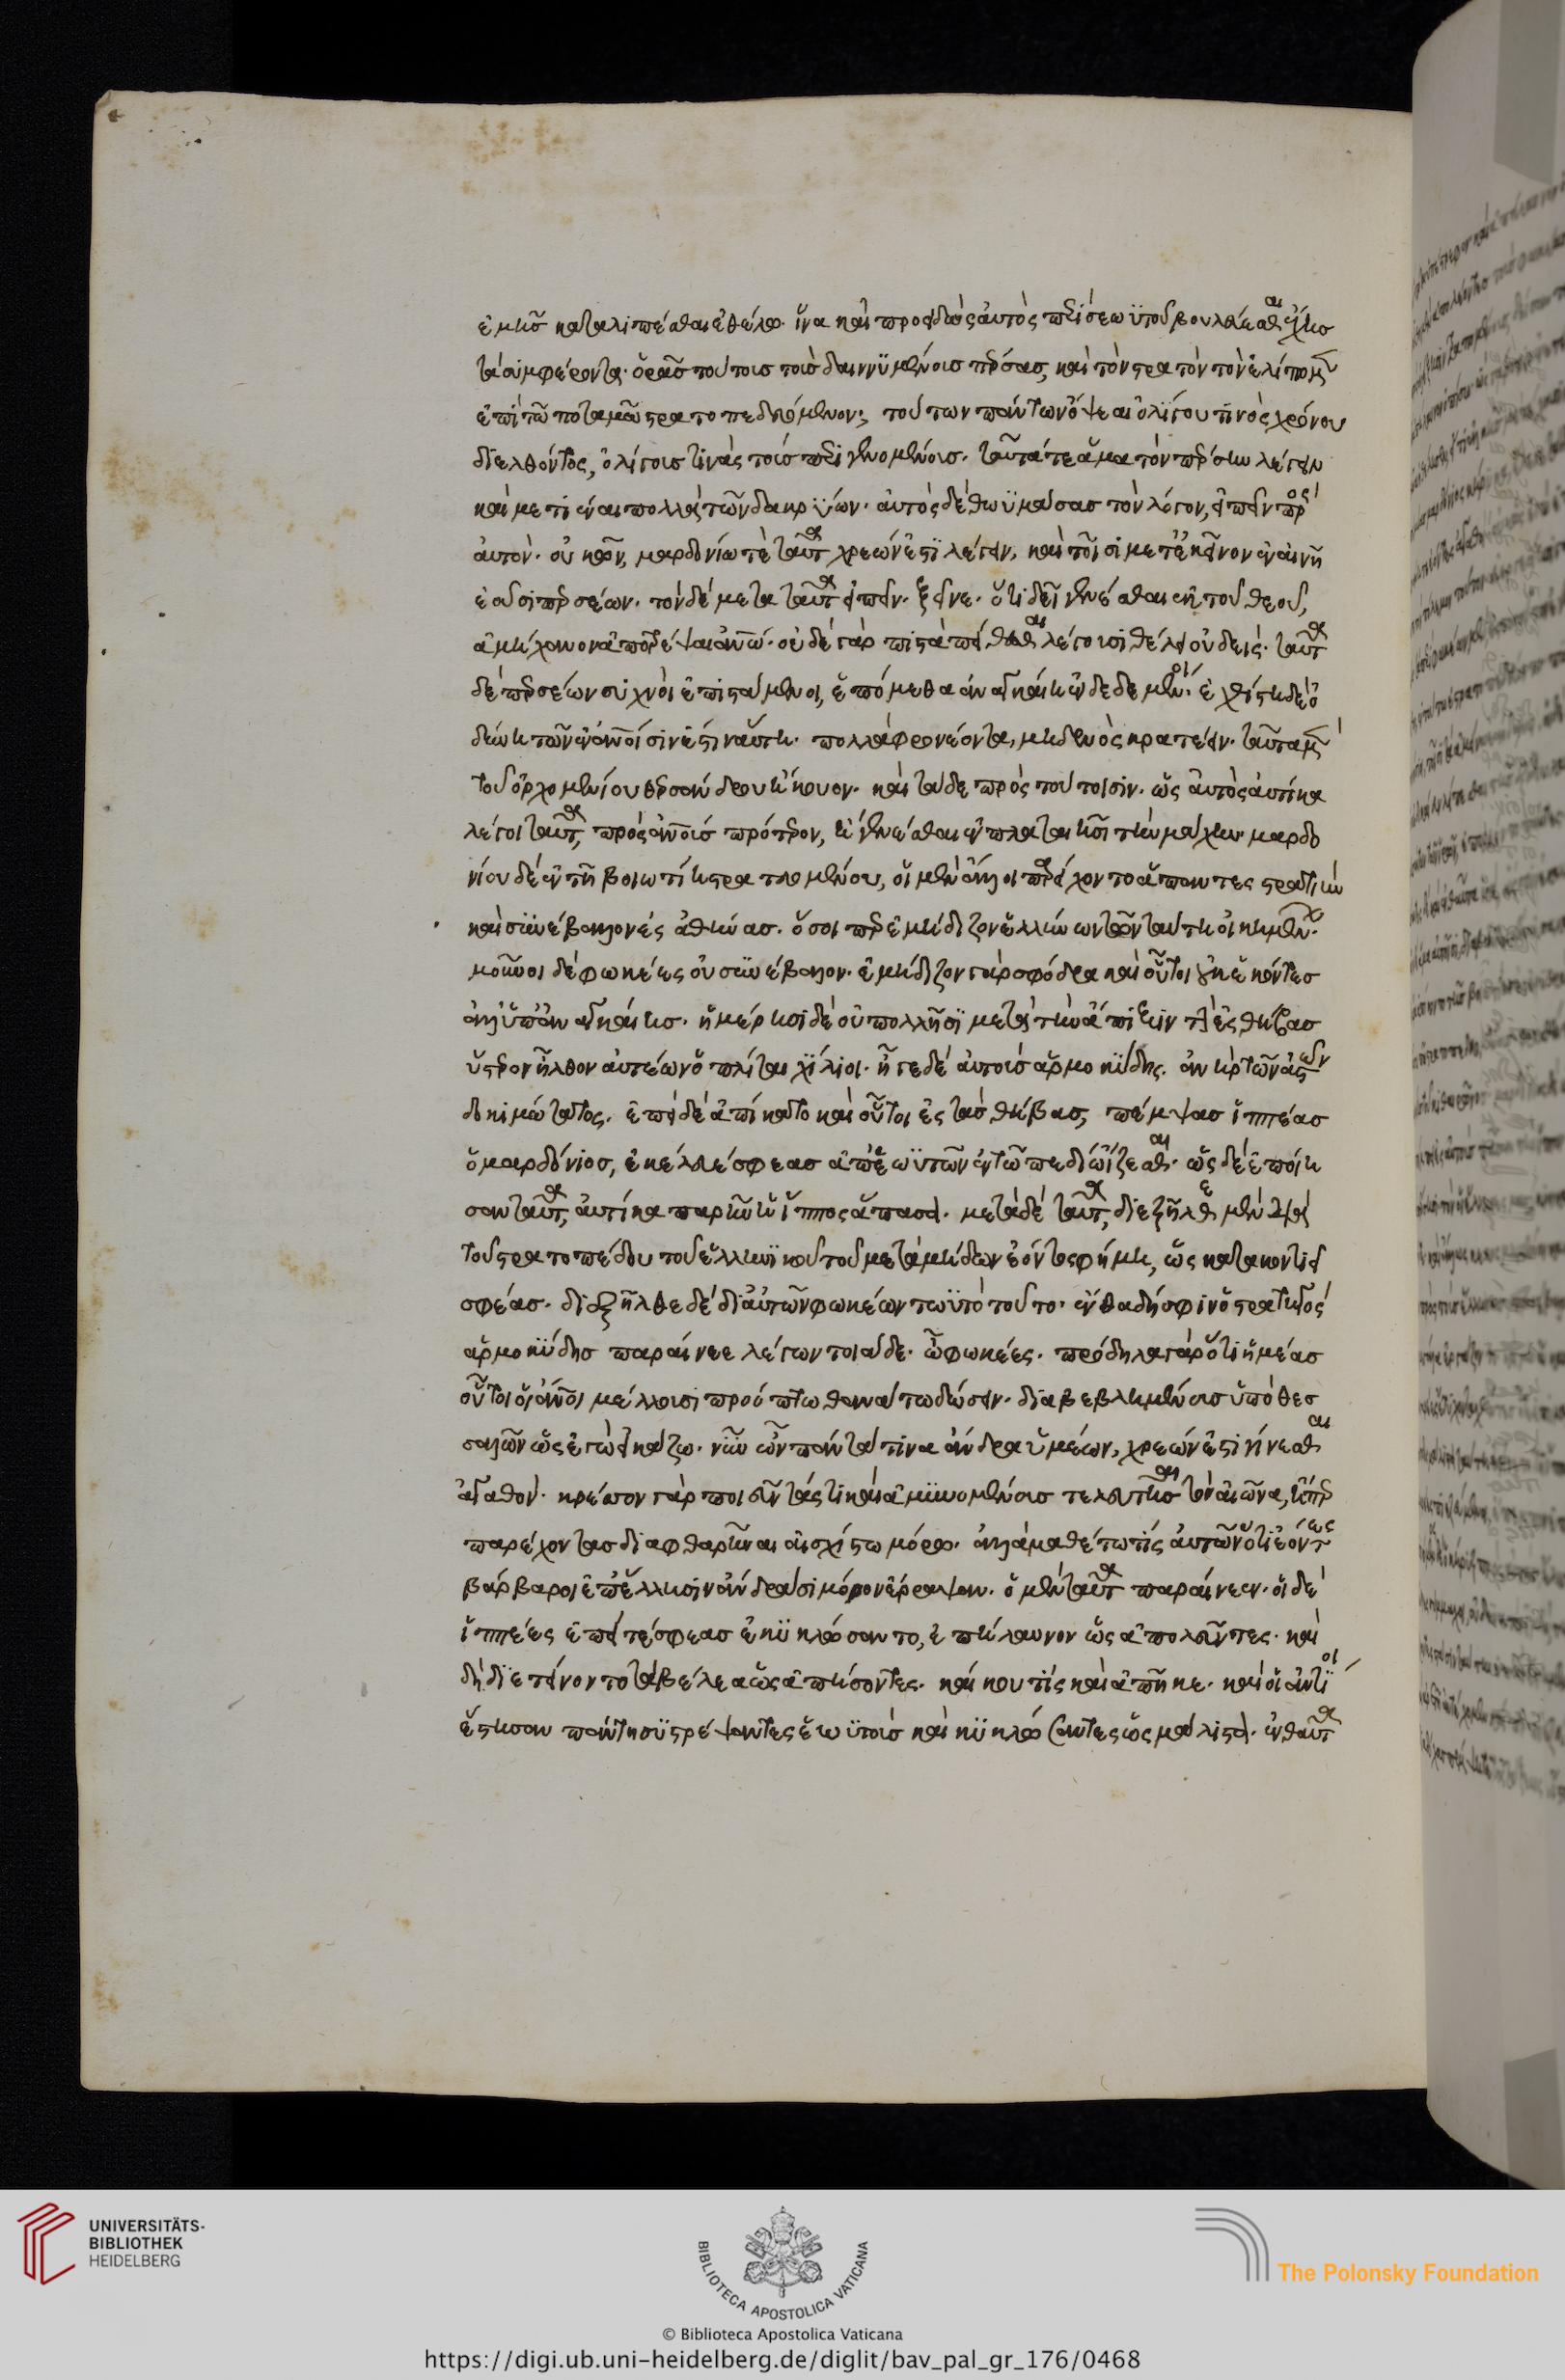 ἐμῆς καταλιπέσθαι ἐθέλω. ἵνα καὶ προειδὼς αὐτὸς περὶ σεωϋτοῦ βουλεύεσθαι ἔχῃς
τὰ συμφέροντα. ὁρᾷς τούτους τοὺς δαιννϋμένους πέρσας, καὶ τὸν στρατὸν τὸν ἐλίπομεν
ἐπὶ τῷ ποταμῷ στρατοπεδευόμενον; τούτων πάντων ὄψεαι ὀλίγου τινὸς χρόνου
διελθόντος, ὀλίγους τινὰς τοὺς περιγενομένους. ταῦτά τε ἅμα τὸν πέρσην λέγειν
καὶ μετιέναι πολλὰ τῶν δακρϋων. αὐτὸς δὲ θωϋμάσας τὸν λόγον, εἰπεῖν πρὸς
αὐτόν. οὐκ ὦν, μαρδονίω τὲ ταῦτα χρεών ἐστϊ λέγειν, καὶ τοῖσι μετ' ἐκεῖνον ἐν αἴνῃ
ἐοῦσι περσέων. τὸν δὲ μετα ταῦτα εἰπεῖν. ξεῖνε. ὅτι δεῖ γενέσθαι ἐκ τοῦ θεοῦ,
ἀμήχανον ἀποτρέψαι ἀνθρώπω. οὐδὲ γὰρ πιστὰ λέγουσι θέλει οὐδείς. ταῦτα
δὲ περσέων συχνοὶ ἐπιστάμενοι, ἑπόμεθα ἀναγκαίη ἐνδεδεμένοι. ἐχθίστη δὲ ὀ
δύνη τῶν ἐν ἀνθρώποισίν ἐστιν αὕτη. πολλὰ φρονέοντα, μηδενὸς κρατέειν. ταῦτα μὲν
τοῦ ὀρχομενίου θερσάνδρου ἤκουον. καὶ τάδε πρὸς τούτοισιν. ὡς αὐτὸς αὐτίκα
λέγοι ταῦτα, πρὸς ἀνθρώπους πρότερον, ἢ γενέσθαι ἐν πλαταιῆσι τὴν μάχην. μαρδο
νίου δὲ ἐν τῇ βοιωτίη στρατευομένου, οἱ μὲν ἄλλοι παρείχοντο ἅπαντες στρατιὴν
καὶ συνέβαλλον ἐς ἀθήνας. ὅσοι περ ἐμήδιζον ἑλλήνων τῶν ταύτη οἰκημένων.
μοῦνοι δὲ φωκέες οὐ συνέβαλλον. ἐμήδιζον γὰρ σφόδρα καὶ οὗτοι οὐκ ἑκόντες
ἀλλ' ὑπ' ἀναγκαίης. ἡμέρησι δὲ οὐ πολλῇσϊ μετὰ τὴν ἄπιξιν τὴν ἐς θήβας
ὕστερον ἦλθον αὐτέων ὁπλῖται χίλιοι. ἦγε δὲ αὐτοὺς ἁρμοκϋδης. ἀνὴρ τῶν ἀστῶν
δοκιμώτατος. ἐπεὶ δὲ ἀπίκατο καὶ οὗτοι ἐς τὰς θήβας, πέμψας ἱππέας
ὁ μαρδόνιος, ἐκέλευέ σφεας ἀπ' ἑωϋτῶν ἐν τῷ πεδίῳ ἵζεσθαι. ὡς δὲ ἐποίη
σαν ταῦτα, αὐτίκα παρῆν ἡ ἵππος ἅπασα. μετὰ δὲ ταῦτα, διεξῆλθε μὲν διὰ
τοῦ στρατοπέδου τοῦ ἑλληνϊκοῦ τοῦ μετὰ μήδων ἐόντος φήμη, ὡς κατακοντιεῖ
σφέας. διεξῆλθε δὲ δι' αὐτῶν φωκέων τωϋτὸ τοῦτο. ἔνθα δή σφι ὁ στρατηγὸς
ἁρμοκϋδης παραίνεε λέγων τοιάδε. ὦ φωκέες. πρόδηλα γὰρ ὅτι ἡμέας
οὗτοι οἱ ἄνθρωποι μέλλουσι προόπτω θανάτω δώσειν. διαβεβλημένους ὑπὸ θεσ
σαλῶν ὡς ἐγὼ εἰκάζω. νῦν ὦν πάντα τινα ἄνδρα ὑμέων, χρεών ἐστι γίνεσθαι
ἀγαθόν. κρέσσον γὰρ ποιεῦντάς τι καὶ ἀμϋνομένους τελευτῆσαι τὸν αἰῶνα, ἤπερ
παρέχοντας διαφθαρῆναι αἰσχίστω μόρω. ἀλλὰ μαθέτω τίς αὐτῶν ὅτι ἐόντες
βάρβαροι ἐπ' ἕλλησιν ἀνδράσι μόρον ἔρραψαν. ὁ μὲν ταῦτα παραίνεεν. οἱ δὲ
ἱππέες ἐπεί τέ σφεας ἐκϋκλώσαντο, ἐπήλαυνον ὡς ἀπολεῦντες. καὶ
δὴ διετείνοντο τὰ βέλεα ὡς ἀπήσοντες. καί κου τίς καὶ ἀπῆκε. καὶ οἱ ἀντϊοι
ἔστησαν πάντη συστρέψαντες ἑωϋτοὺς καὶ πϋκνώσαντες ὡς μάλιστα. ἐνθαῦτα
UNIVERSITÄTS-
BIBLIOTHEK
HEIDELBERG
BIBLIOTECA APOSTOLICA VATICANA
© Biblioteca Apostolica Vaticana
The Polonsky Foundation
https://digi.ub.uni-heidelberg.de/diglit/bav_pal_gr_176/0468